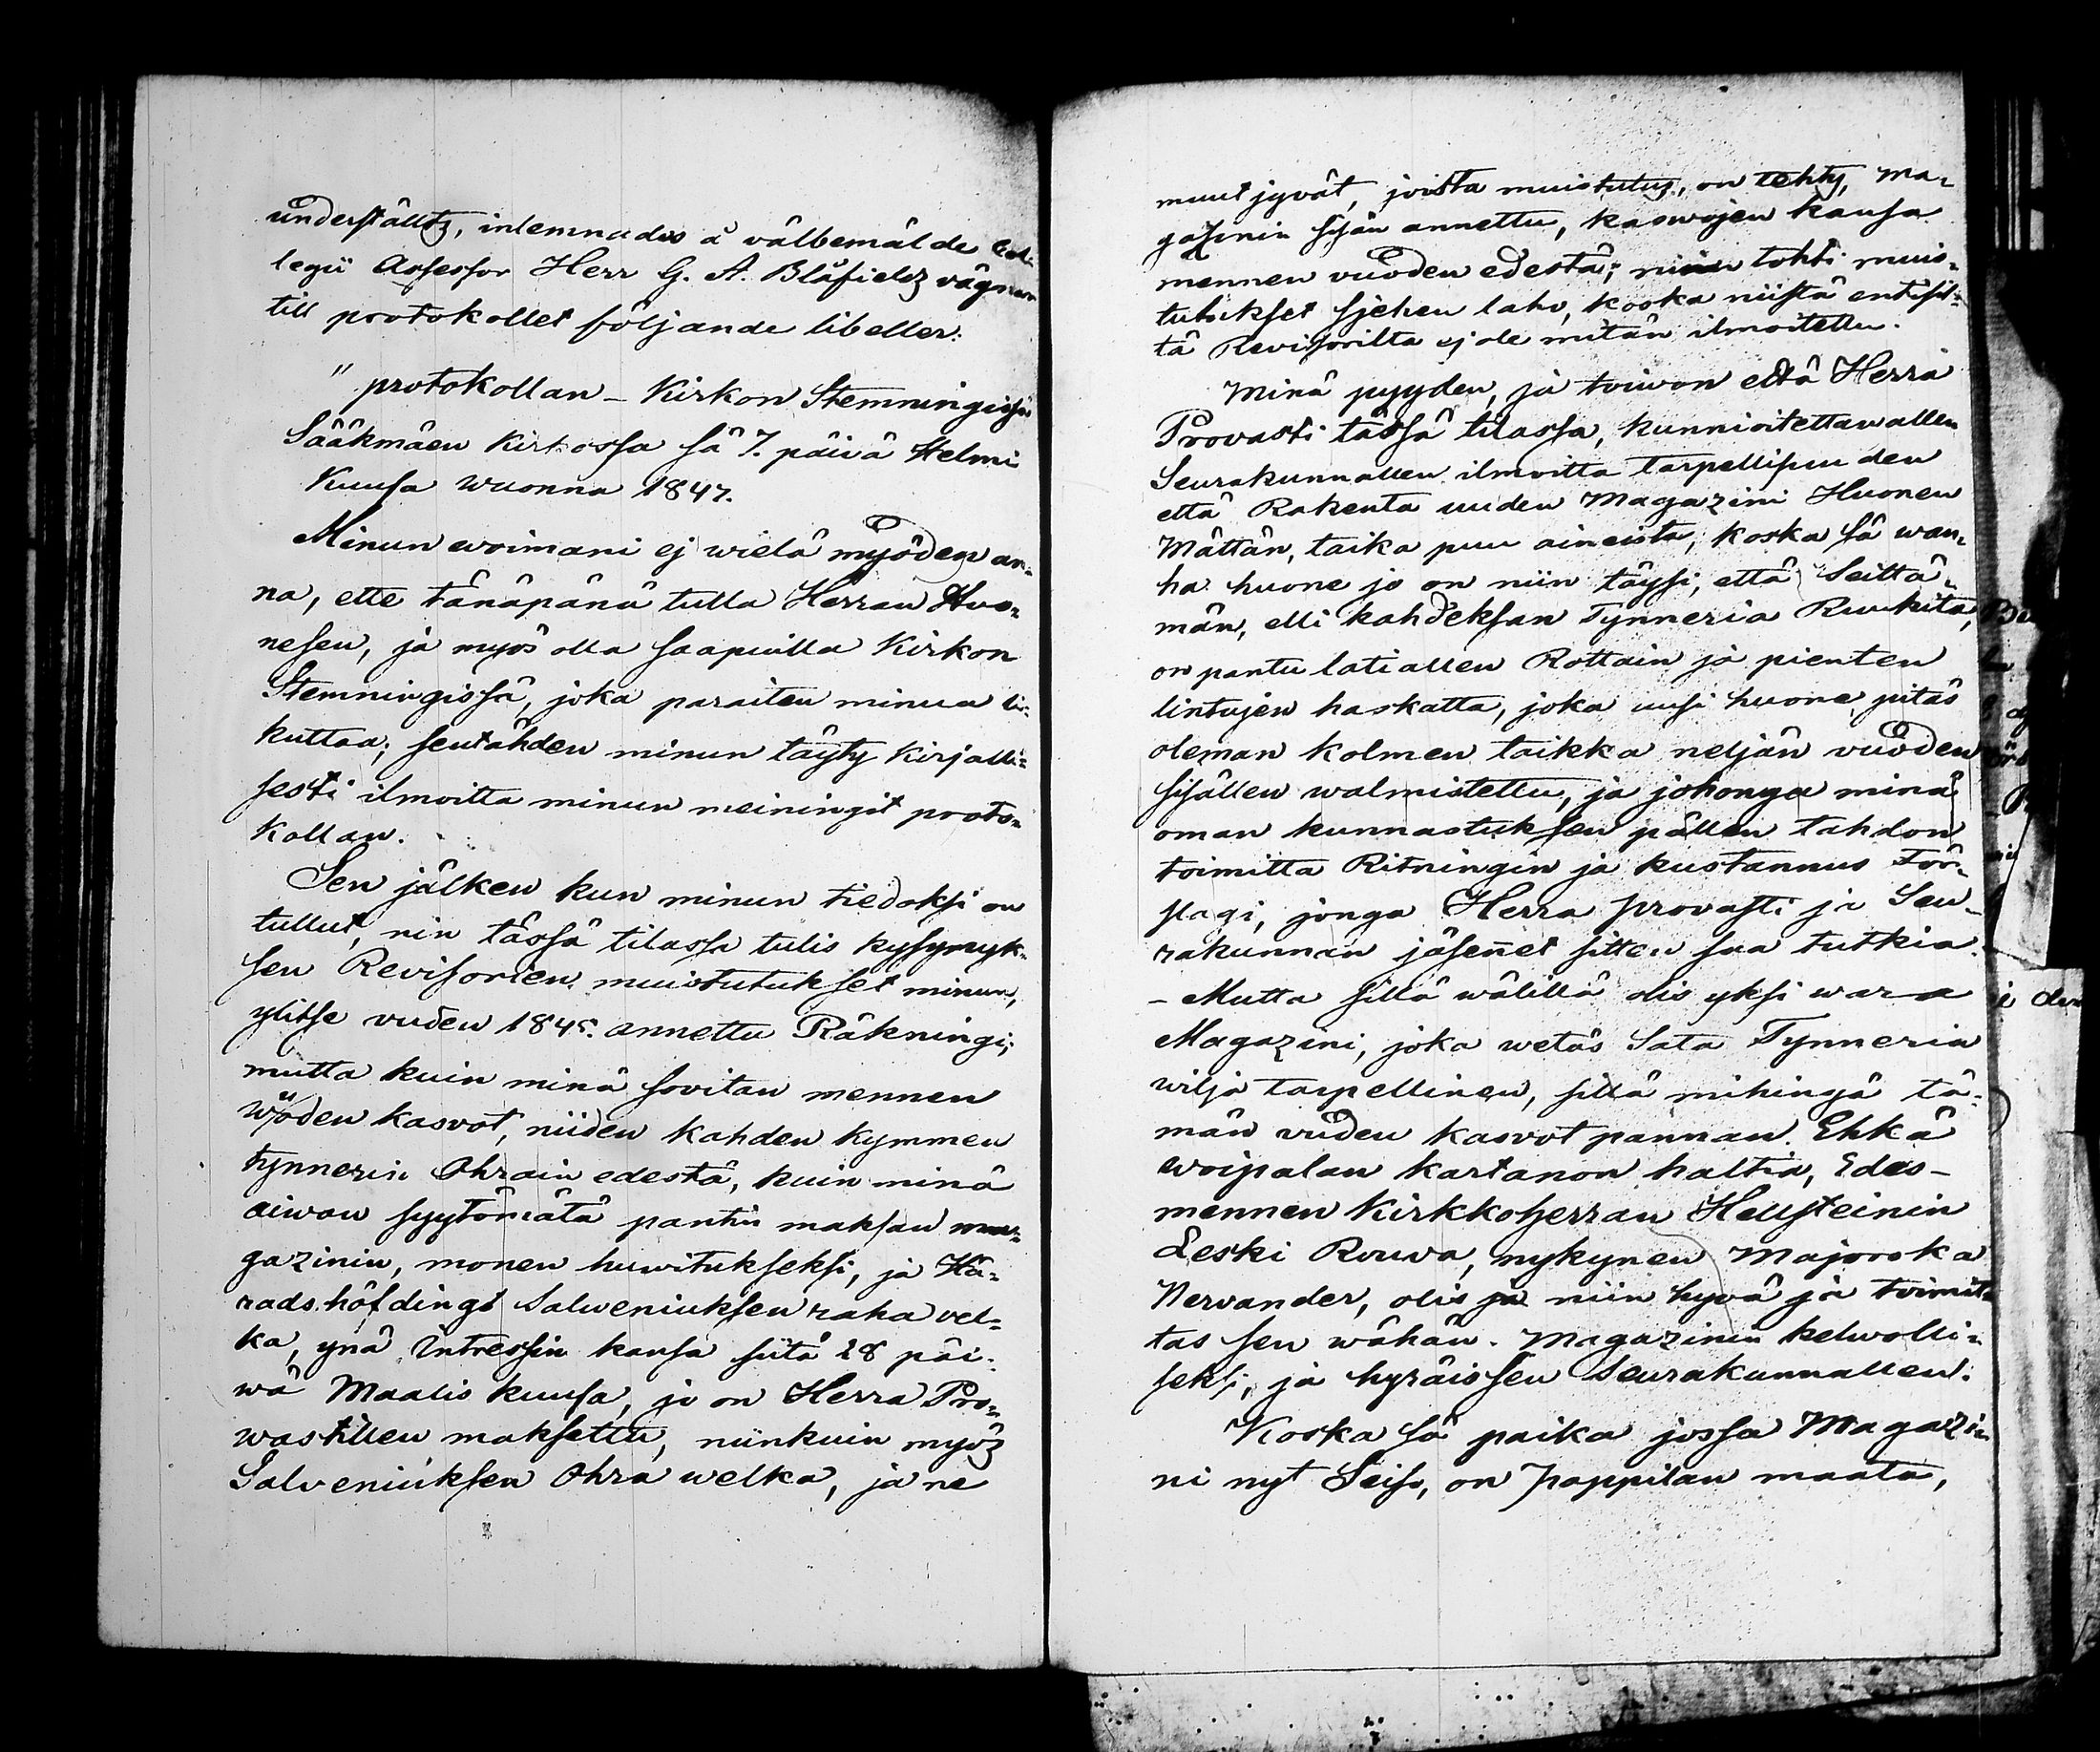 underställtz, inlemnades å välbemälde Col-
legii Assessor Herr G. A. Blåfieldz vägnar
till protokollet följande libeller:
" protokollan – Kirkon Stemningissä
Sääkmäen Kirkossa sä 7. päivä Helmi
Kuusa wuonna 1847.
Minun woimani ej wielä myöden an-
na, ette tänäpänä tulla Herran Huo-
nesen, ja myös olla saapuilla Kirkon
Stemningissä, joka paraiten minua li-
kuttaa; sentähden minun täyty Kirjalli-
sesti ilmoitta minun meiningit proto-
kollan.
Sen jälken kun minun tiedoksi on
tullut, nin tässä tilassa tulis kysymyk-
sen Revisorien muistutukset minun,
ylitse vuden 1845. annettu Räkningi;
mutta kuin minä sovitan mennen
wuoden kasvot, niiden kahden kymmen
tynnerin Ohrain edestä, kuin minä
aiwan syytömätä pantin maksan ma-
gazinin, monen huwitukseksi, ja Hä-
radshöfdingi Salveniuksen raha vel-
ka, ynä Intressin kansa siitä 28 päi-
wä Maalis kuusa, jo on Herra Pro-
wastillen maksettu, niinkuin myöz
Salveniuksen Ohra welka, ja ne
muut jyvät, joista muistutus, on tehty, Ma-
gazinin sisän annettu, kaswojen kansa
mennen vuoden edestä; niinn tohti muis-
tutukset sjehen laho, koska niistä entisil-
tä Revisorilta ej ole mitän ilmoitettu.
Minä pyyden, ja toiwon että Herra
Provasti tässä tilassa, kunnioitettawallen
Seurakunnallen ilmoitta tarpellisuuden
että Rakenta uuden Magazini Huonen
Mättän, taika puu aineista, koska sä wan-
ha huone jo on niin täysi, että Seittä-
män, elli kahdeksan Tynneria Ruukita,
on pantu latiallen Rottain ja pienten
lintujen haskatta, joka uusi huone pitäs
oleman kolmen taikka neljän vuoden
sisällen walmistettu, ja johonga minä
oman kunnastuksen pällen tahdon
toimitta Ritningin ja kustannus För-
slagi, jonga Herra provasti ja Seu-
rakunnan jäsenet sitten saa tutkia.
– Mutta sillä wälillä olis yksi wara
Magazini, joka wetäs Sata Tynneria
wiljä tarpellinen, sillä mihingä tä-
män vuden kasvot pannan. Ehkä
woipalan kartanon haltia, Edes-
mennen Kirkkoherran Hellsteinin
Leski Rouva, nykynen Majorska
Nervander, olis ja niin hyvä ja toimit-
tas sen wähän Magazinin kelwolli-
seksi, ja hyräis sen Seurakunnallen.
Koska sä paika jossa Magazi-
ni nyt Seiso, on pappilan maata,